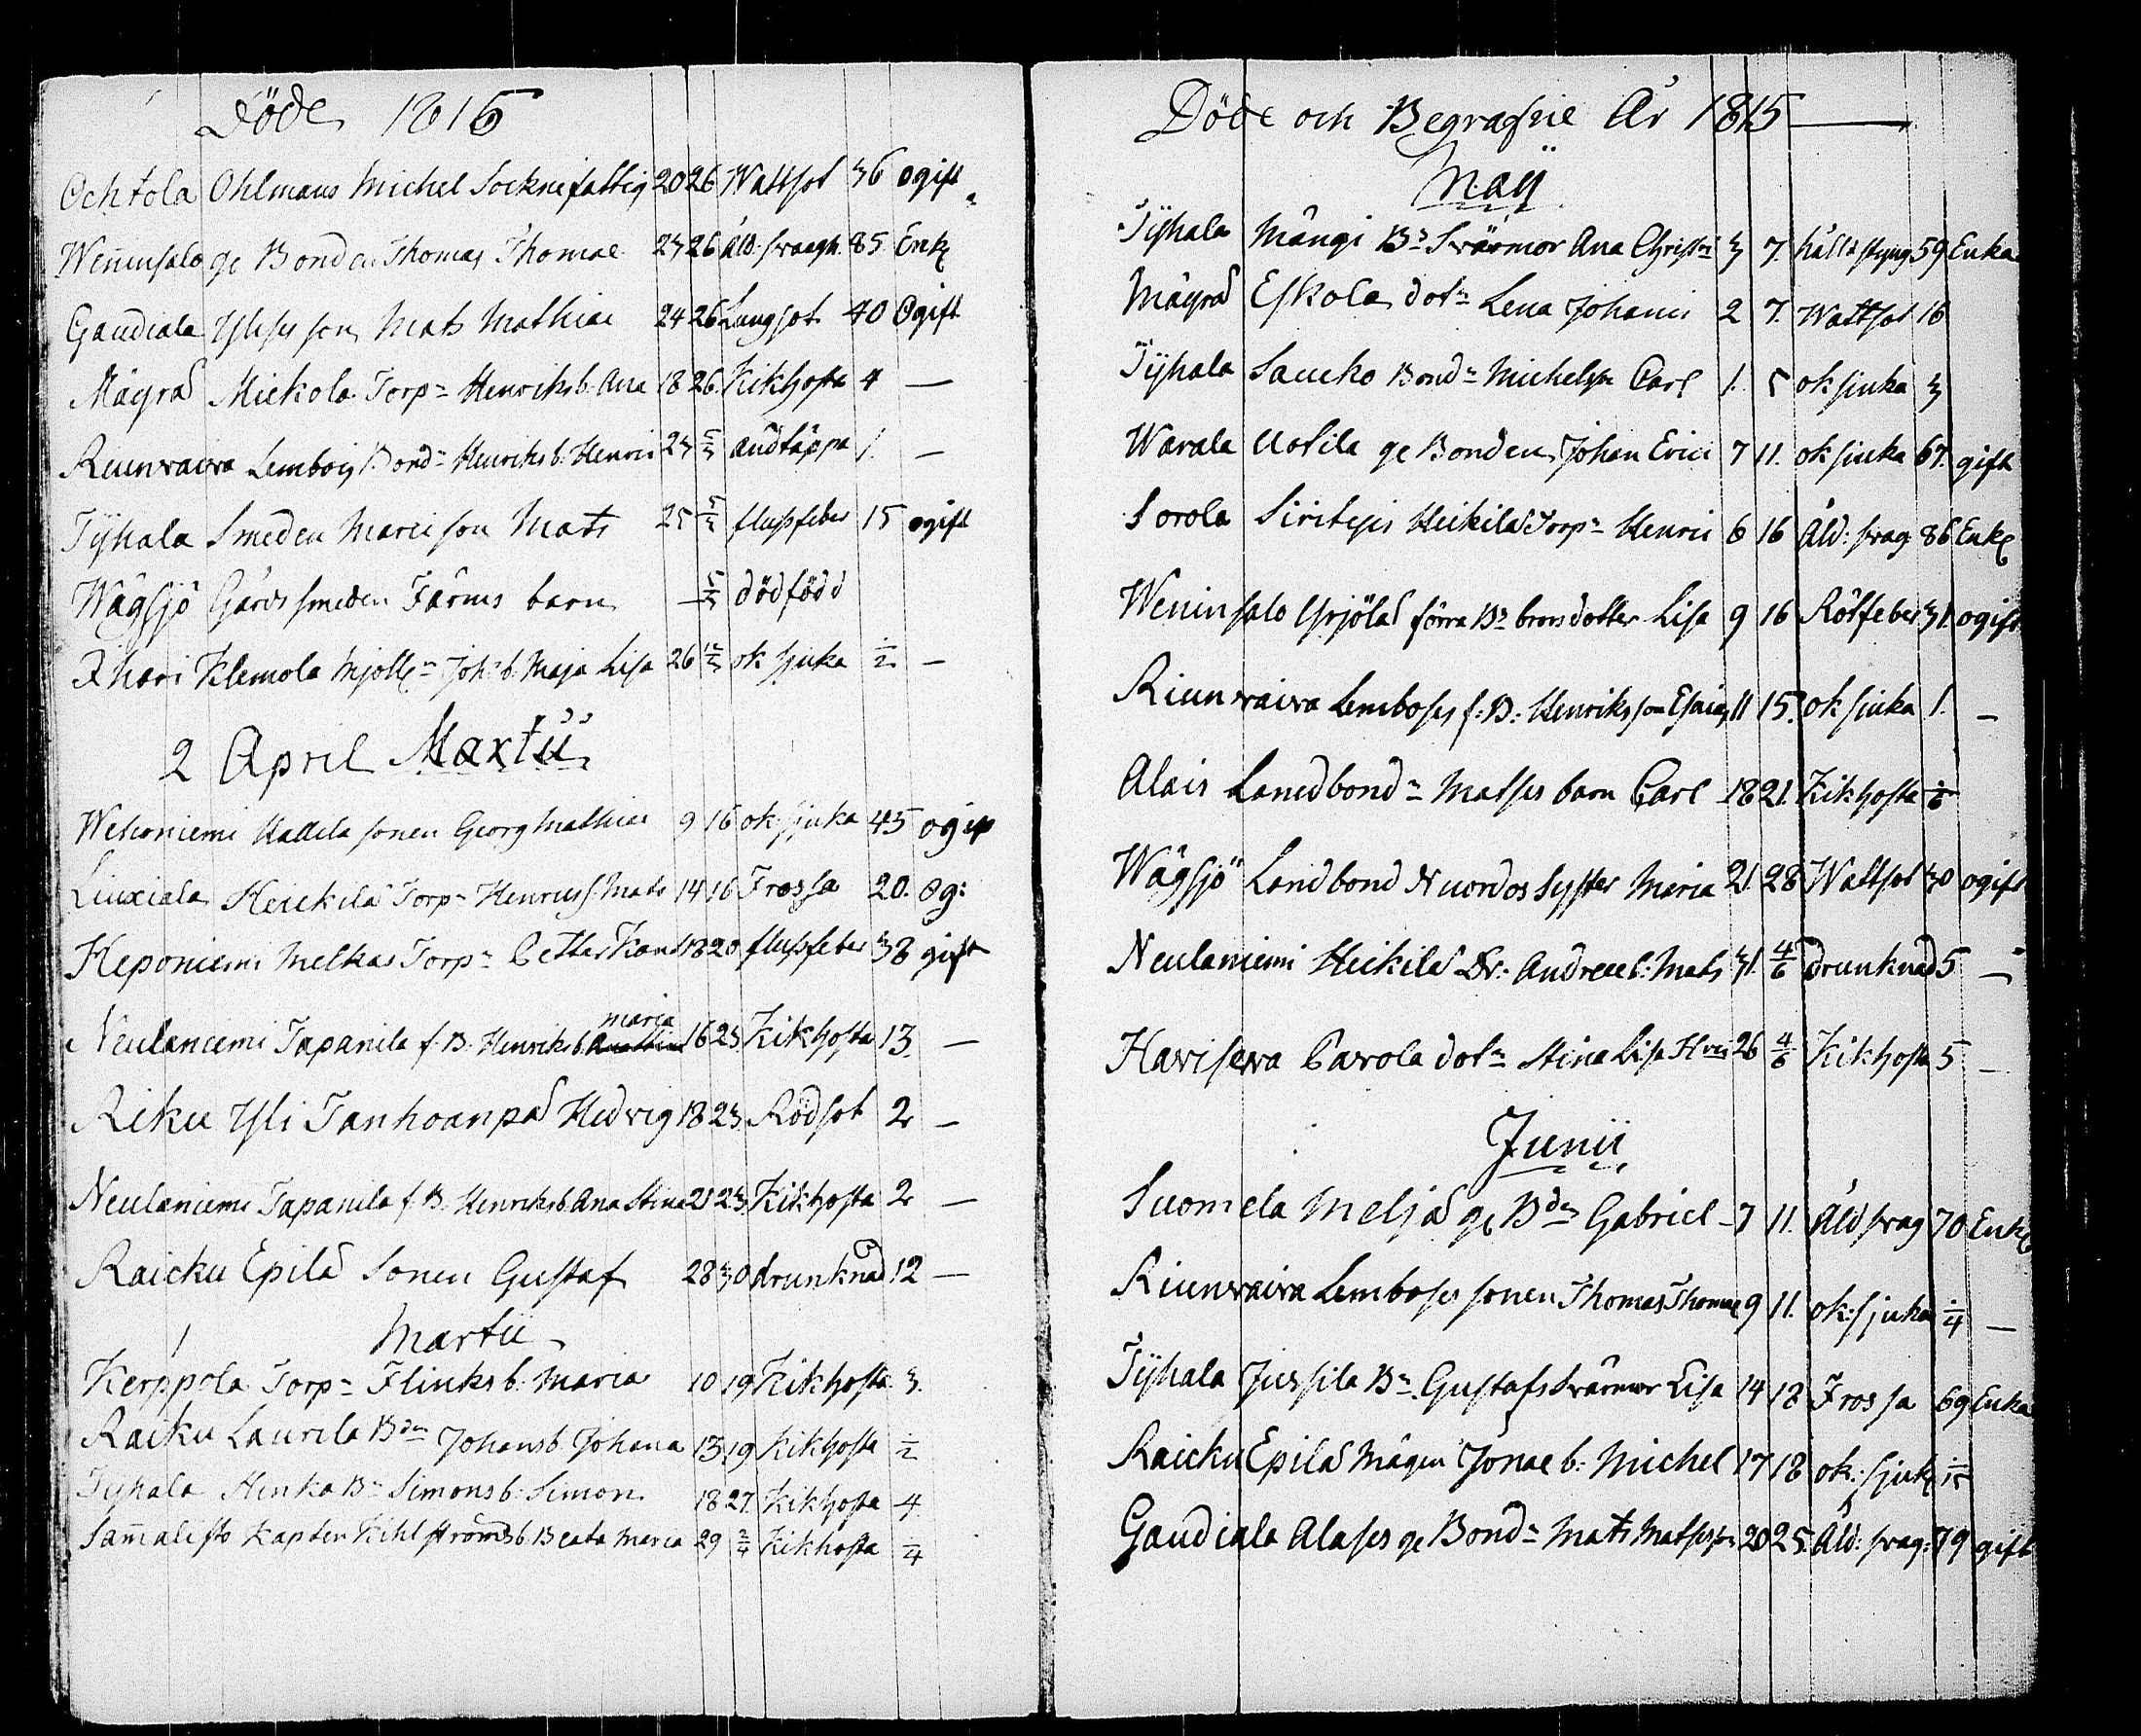 Döde 1815
Ochtola Ohlmans Michel Socknefattig 20 26 Wattsot 36 ogift
Weninsalo ge Bonden Thomas Thomae 23 26 Åld. swagh. 85. Enk
Gaudiala Ylises son Mats Mathiae 24 26 Lungsot 40 Ogift
Mäyrä Mickola Torp= Henriks b. Ana 18 26 Kikhosta 4 —
Riunvaiva Lembois Bond= Henriks b. Henric 23 5/3 andtäppa 1. —
Tyhala Smeden Marci son Mats 25 5/3 flussfeber 15 ogift
Wågsjö Gårds smeden Färms barn — 5/3 dödfödd
Ihari Klemola Mjöll= Joh: b. Maja Lisa 26 12/3 ok sjuka 1/2 —
2 April Martii
Wehoniemi Uottila sonen Georg Mathiae 9 16 ok: sjuka 45 ogift
Liuxiala Heickilä Torp= Henrics s. Mats 14 16 Frossa 20. Og:
Heponiemi Melkas Torp= Petter 18 20 flussfeber 38 gift
Neulaniemi Tapanila f. B. Henriks b. maria 16 23. Kikhosta 13. —
Riku Yli Tanhoanpä Hedvig 18 23. Rödsot 2 —
Neulaniemi Tapanila f. B. Henriks b. Ana Stina 21 23. Kikhosta 2 —
Raicku Epilä Sonen Gustaf 28 30 drunknad 12 —
1 Martii
Kerppola Torp= Flinks b. Maria 10 19 Kikhosta 3.
Raiku Laurila Bdn Johans b. Johana 15 19 Kikhosta 1/2
Tyhala Henka B= Simons b. Simon 18 27. Kikhosta 4
Samalisto Kapten Kihlströms b. Beata Maria 29 2/4 Kikhosta 1/4
Döde och Begrafne År 1815 —
Maij
Tyhala Mångi B= Svärmor Ana Christi 3 7. håll o styng 59 Enka
Mäyrä Eskola dot= Lena Johani 2 7. Wattsot 16
Tyhala Saucko Bond= Michels son Carl 1. 5 ok sjuka 3
Warala Uotila ge Bonden Johan Erici 7 11. ok sjuka 67. gift
Sorola Heikilä Torp= Henric 6 16 Åld: swag 86 Enk
Weninsalo Yrjölä förra B= brors dotter Lisa 9 16 Rötfeber 31. ogift
Riunvaiva Lemboses f: B: Henriks son Esaias 11 15. ok sjuka 1. —
Alais Landbond= Matses barn Carl 18 21. Kikhosta 1/6
Wågsjö Landbond Nuordos Syster Maria 21. 28 Wattsot 30 ogift
Neulaniemi Heikilä Dr: Andreae b: Mats 31. 4/6 drunknad 5 —
Harisewa Parola dot= Stina Lisa Hrici 26 4/6 Kikhosta 5 —
Junii
Suomela Meljä ge Bdn Gabriel — 7 11. Åld swag 70 Enk
Riunvaiva Lemboses sonen Thomas Thomae 9 11. ok: sjuka 1/4 —
Tyhala Jussila B= Gustafs Svärmor Lisa 14 18 Frossa 69 Enka
Raicku Epilä Mågen Jonae b: Michel 17 18 ok: sjuk
Gaudiala Alases ge Bond= Mats Matsson 20 25. Åld: swag: 79 gift